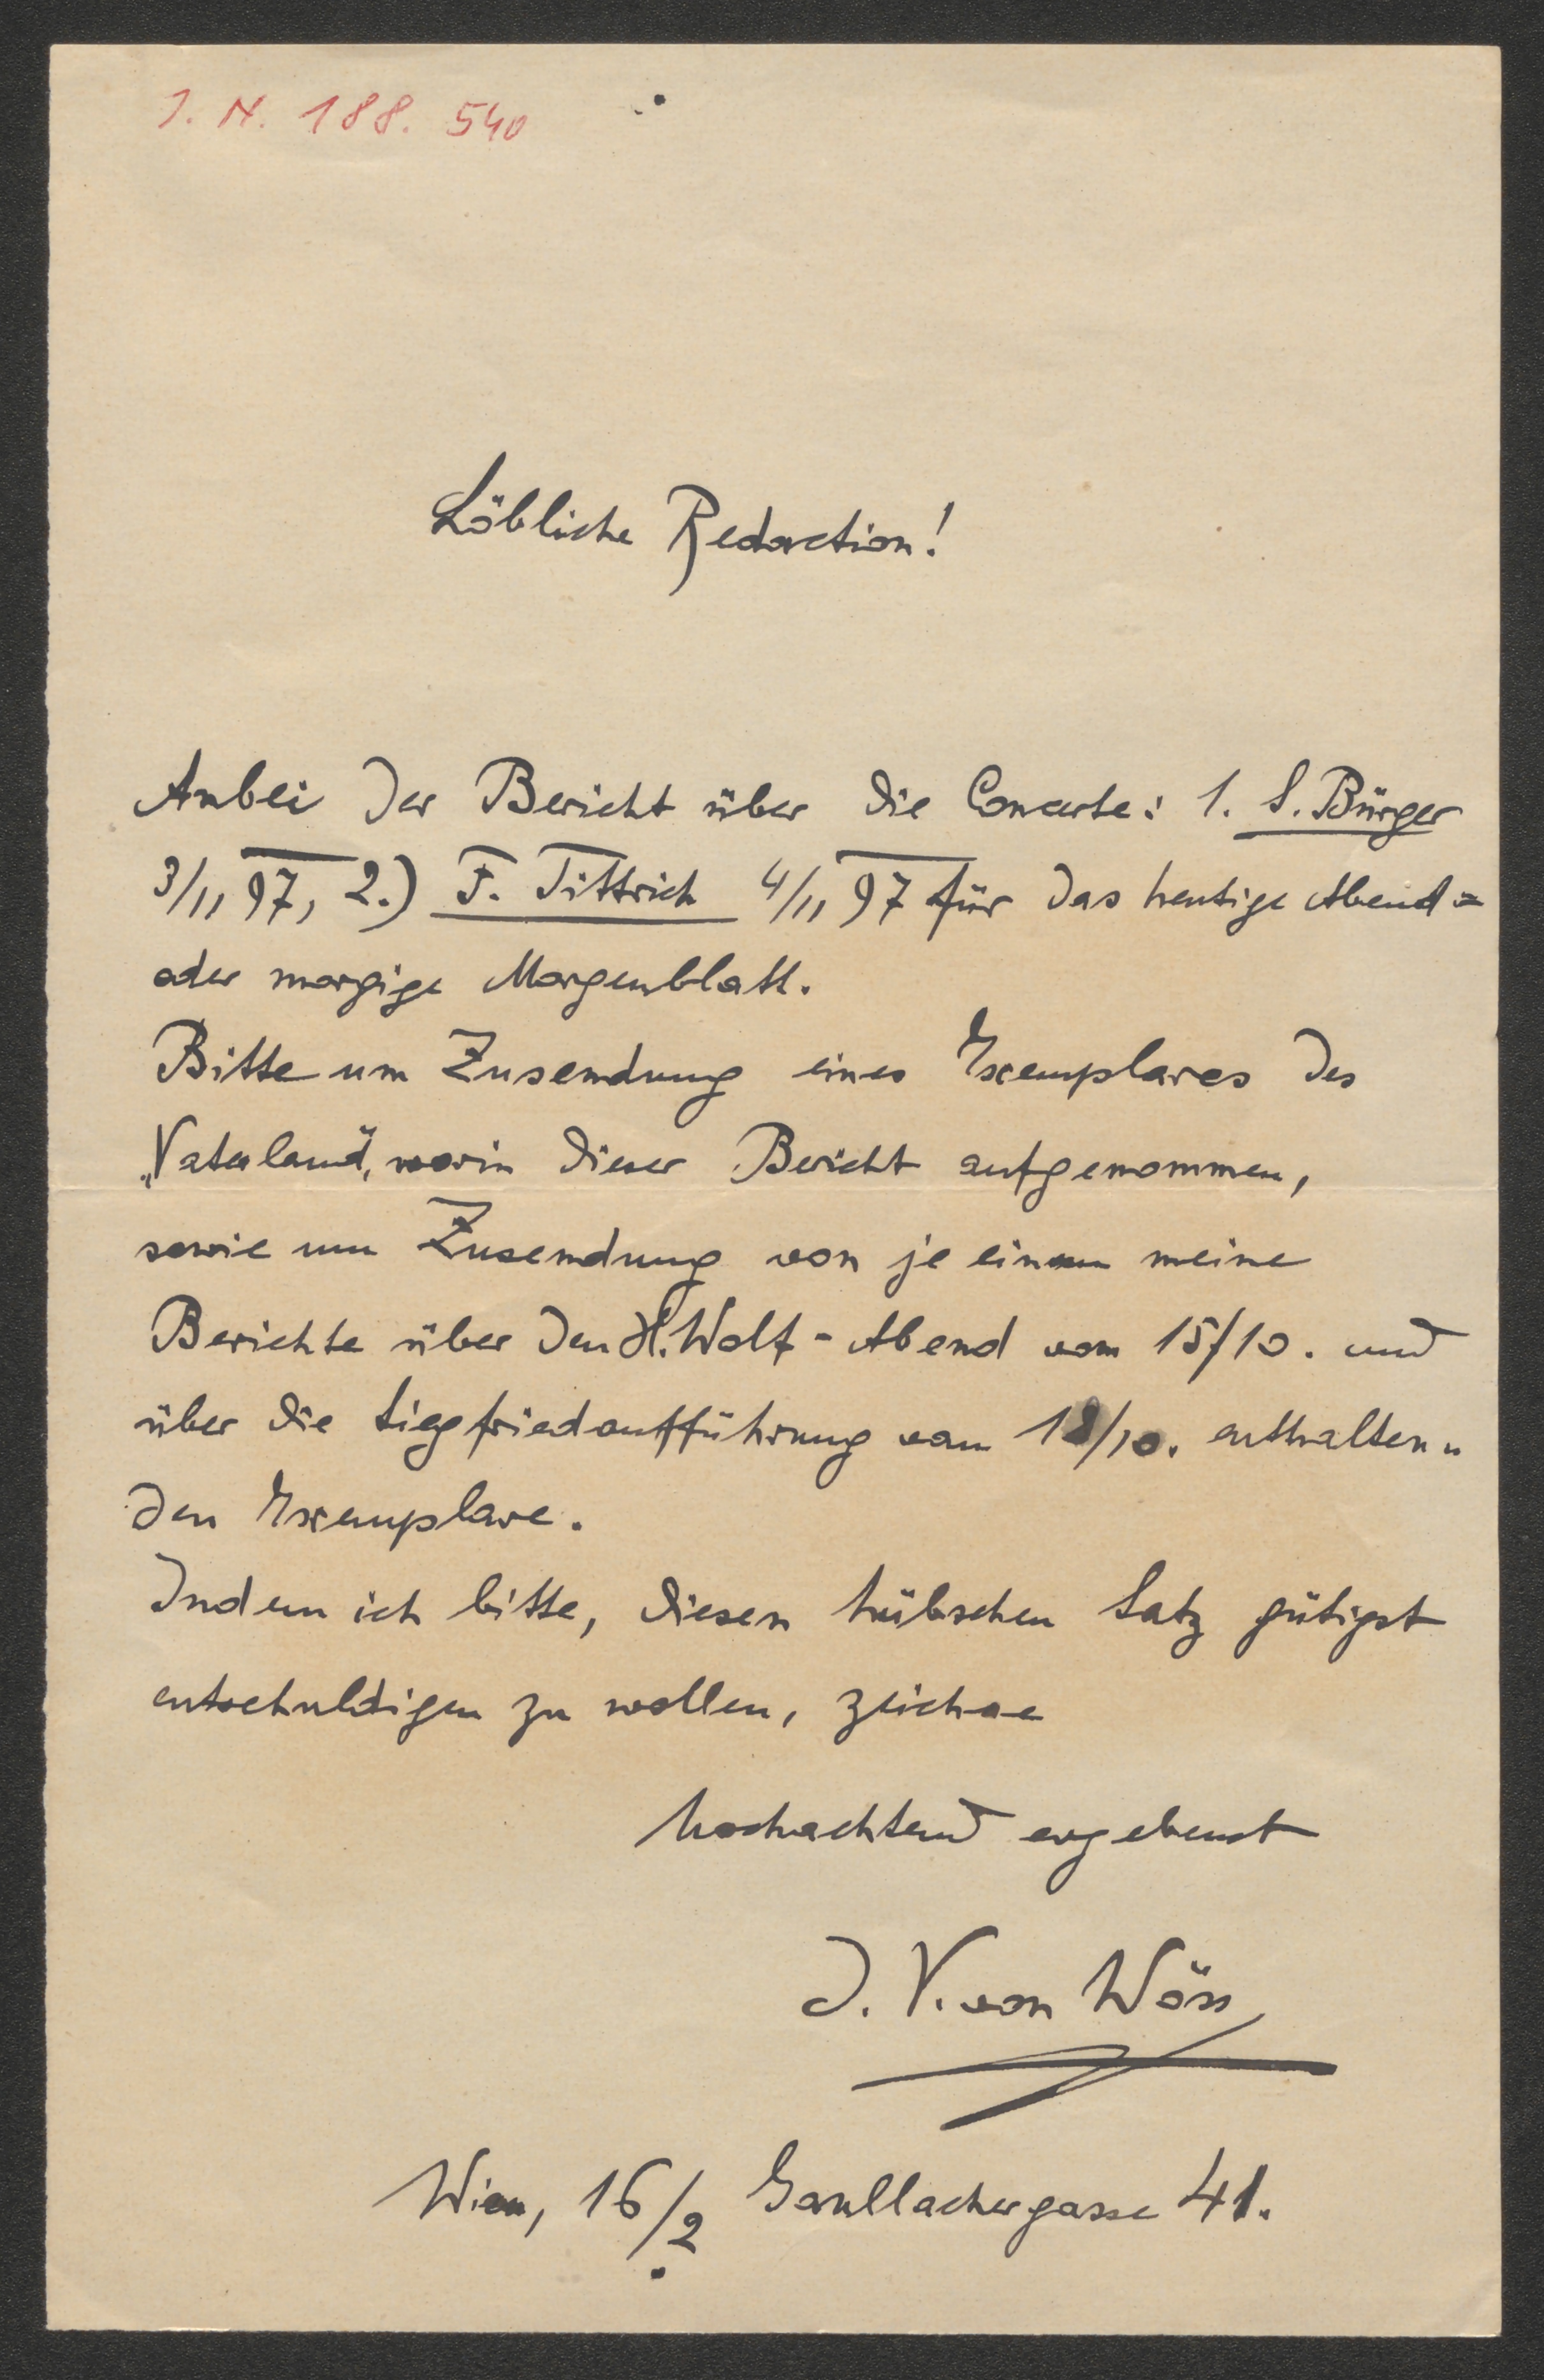 J. N. 188. 540
Löbliche Redaction!
Anbei der Bericht über die Concerte: 1. S. Bürger
3/11 97, 2.) F. Dittrich 4/11 97 für das heutige Abend=
oder morgige Morgenblatt.
Bitte um Zusendung eines Exemplares des
„Vaterland“, worin dieser Bericht aufgenommen,
sowie um Zusendung von je einem meine
Berichte über den H. Wolf-Abend vom 15/10. und
über die Siegfriedaufführung vom 18/10. enthalten=
den Exemplare.
Indem ich bitte, diesen hübschen Satz gütigst
entschuldigen zu wollen, zeichne
hochachtend ergebenst
J. V. von Wöss
Wien, 16/2 Gaullachergasse 41.